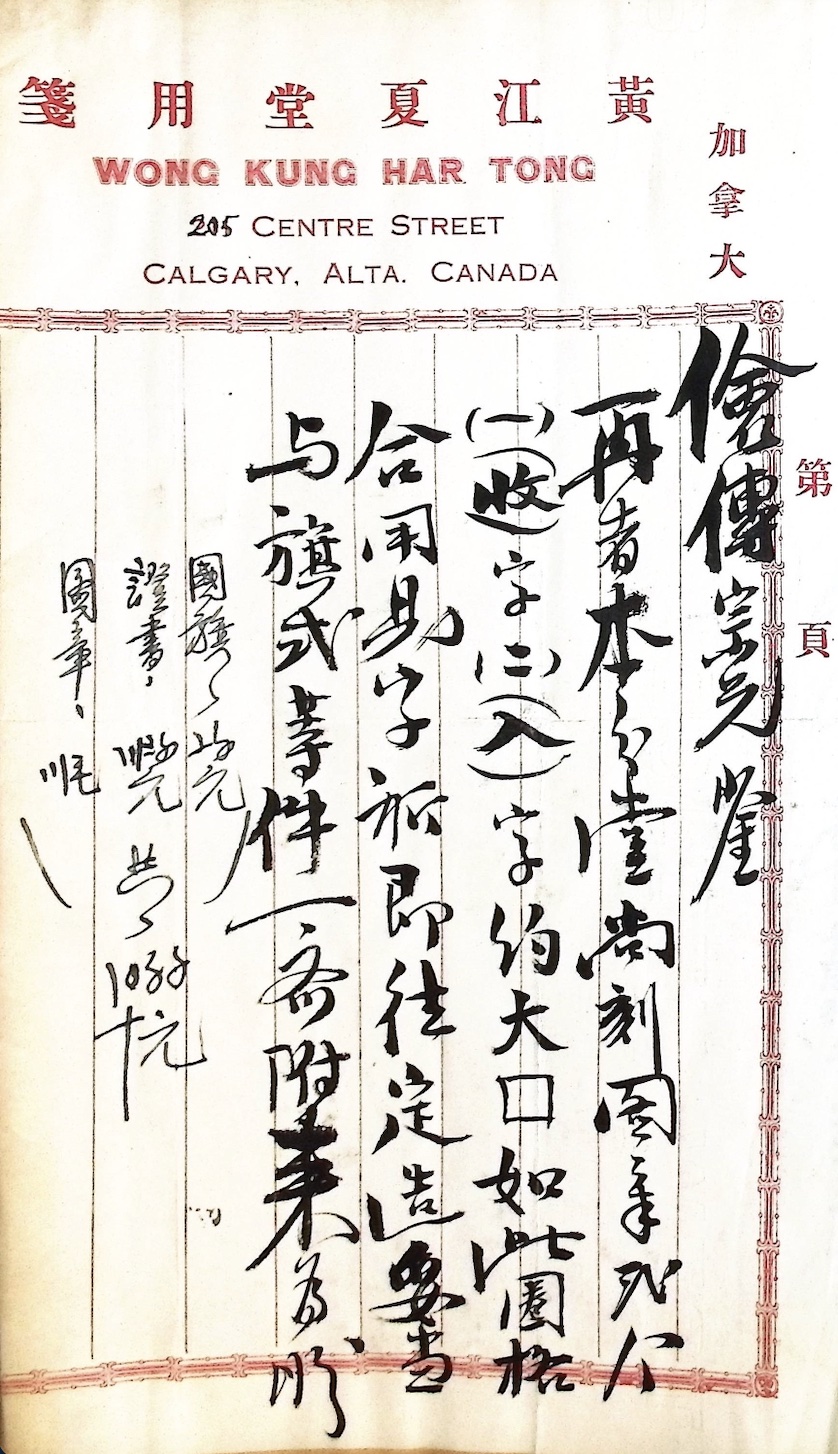 黃江夏堂用箋
WONG KUNG HAR TONG
205 CENTRE STREET
CALGARY, ALTA. CANADA
加拿大
第 頁
儉傳宗兄鑒
再者本分堂尚刻圖章弍个
(一)(收)字(二)(入)字約大口如此圍格
合用 字祈即往定造要当
与旗式等件一斎附来為盼
國旗、 元
證書、 元
圖章、
共、 元